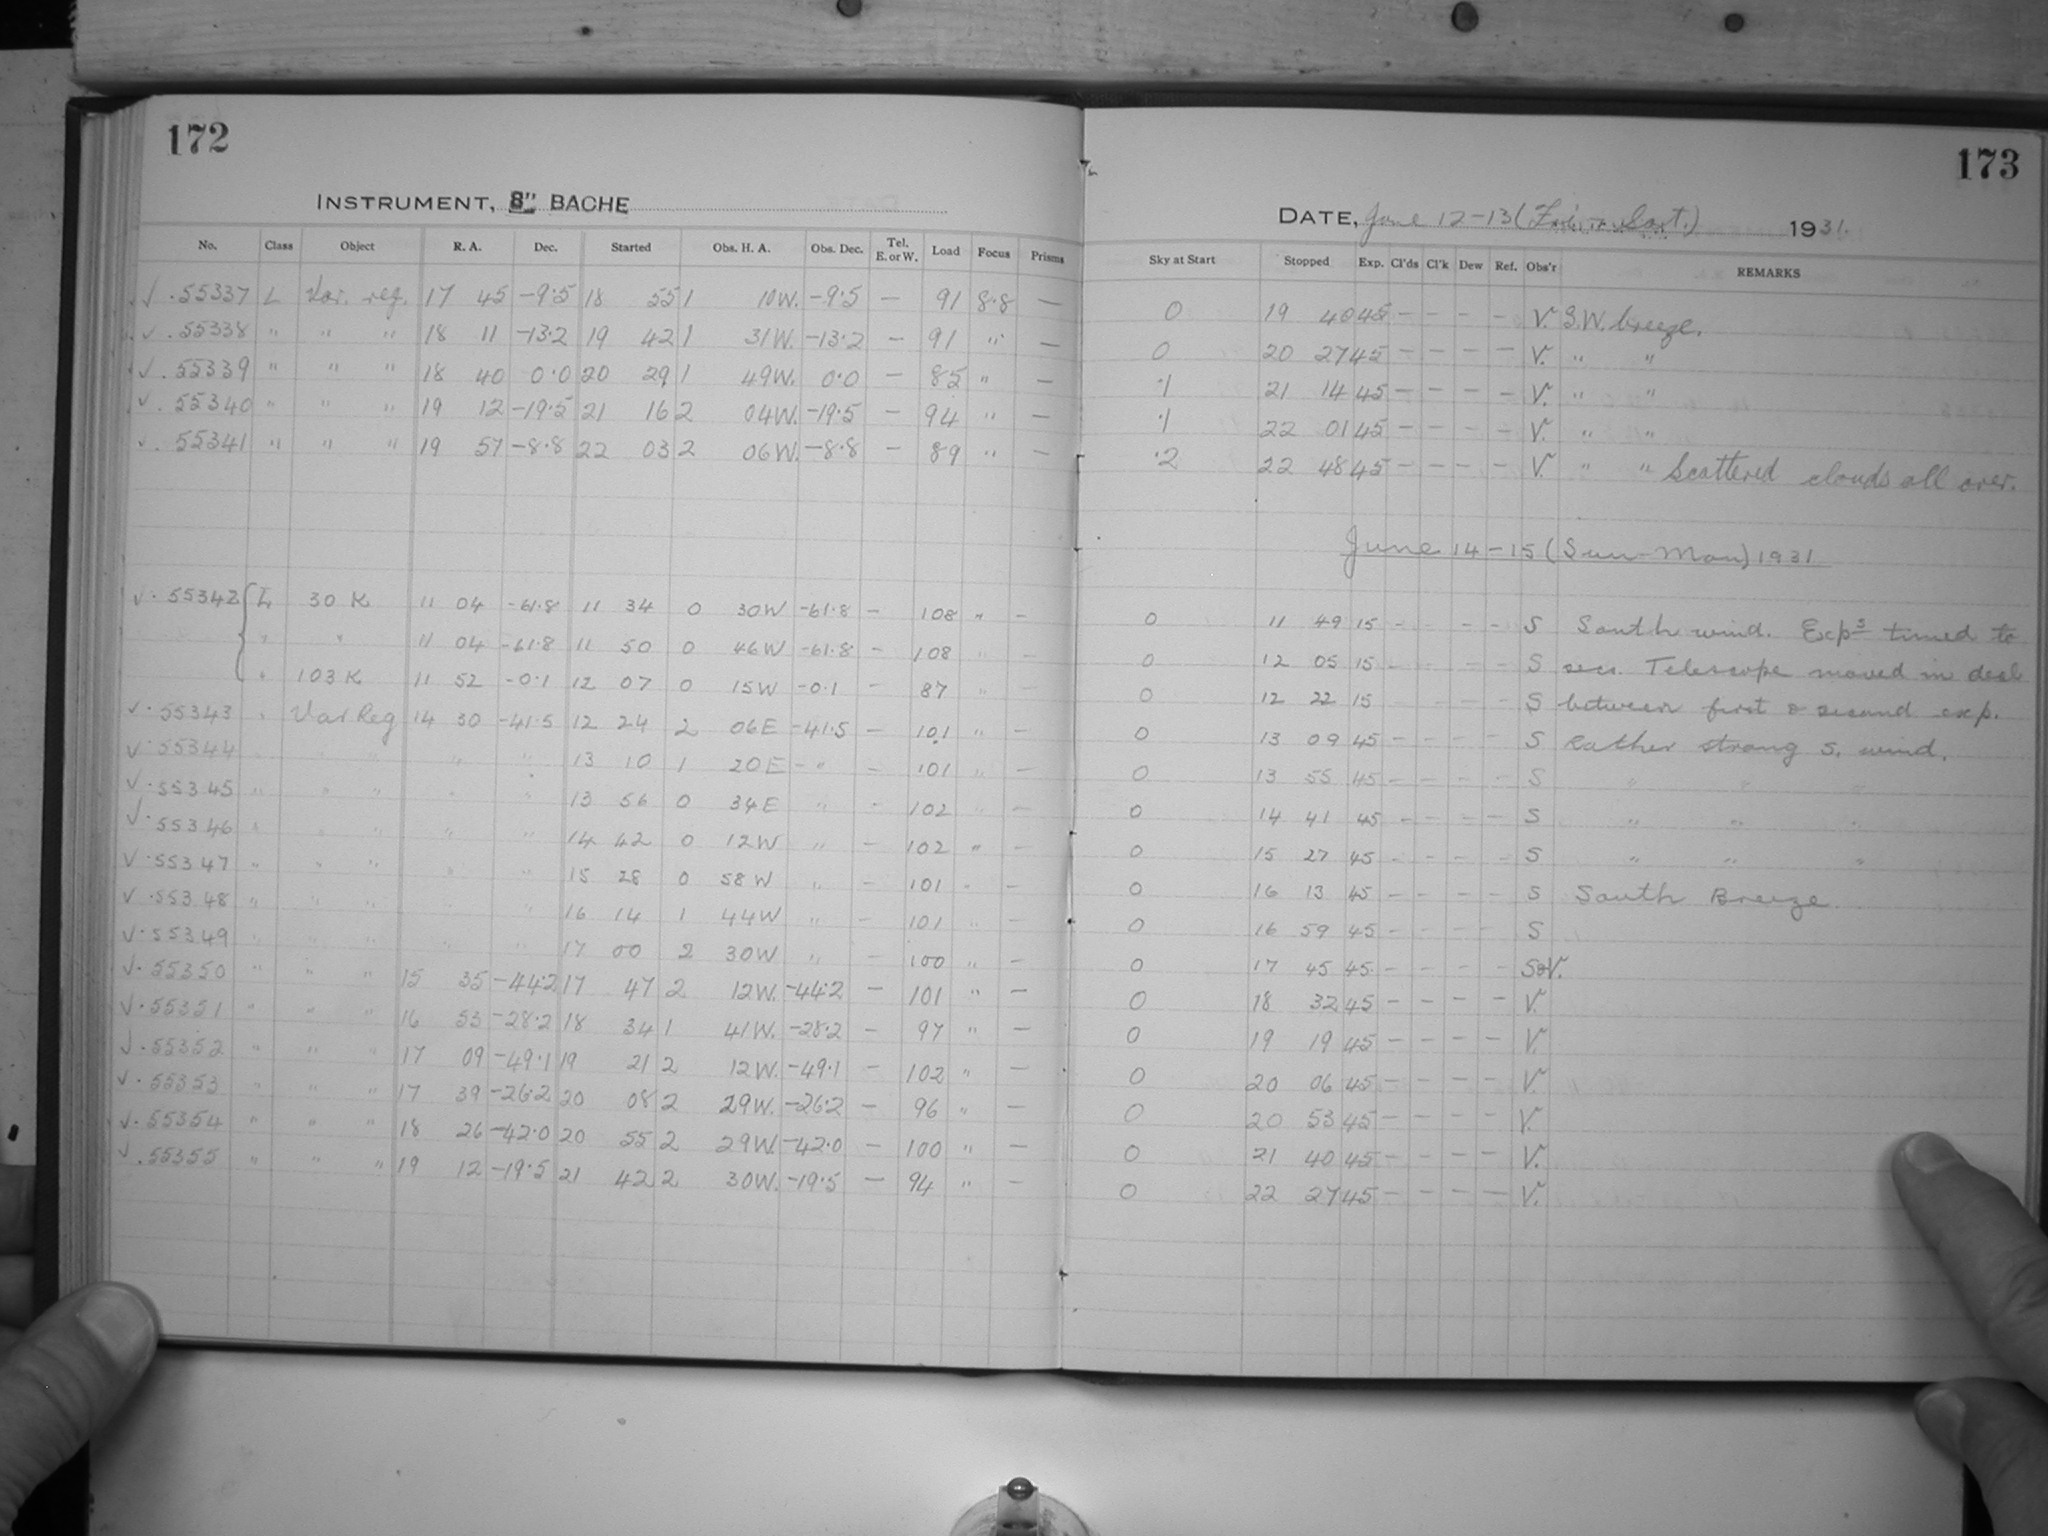 172
INSTRUMENT, 8" BACHE
No. Class Object R. A. Dec. Started Obs. H. A. Obs. Dec. Tel. E. or W. Load Focus Prisms
√ . 55337 L Var. reg. 17 45 -9.5 18 55 1 10W. -9.5 — 91 8.8 —
√ . 55338 " " " 18 11 -13.2 19 42 1 31W. -13.2 — 91 " —
√ . 55339 " " " 18 40 0.0 20 29 1 49W. 0.0 — 85 " —
√ . 55340 " " " 19 12 -19.5 21 16 2 04W. -19.5 — 94 " —
√ . 55341 " " " 19 57 -8.8 22 03 2 06W. -8.8 — 89 " —
√ . 55342 { L 30 K 11 04 -61.8 11 34 0 30W -61.8 — 108 " —
" " 11 04 -61.8 11 50 0 46W -61.8 — 108 " —
" 103 K 11 52 -0.1 12 07 0 15W -0.1 — 87 " —
√ . 55343 " Var Reg 14 30 -41.5 12 24 2 06E -41.5 — 101 " —
√ . 55344 " " " " " 13 10 1 20E - " — 101 " —
√ . 55345 " " " " " 13 56 0 34E " — 102 " —
√ . 55346 " " " " " 14 42 0 12W " — 102 " —
√ . 55347 " " " " " 15 28 0 58W " — 101 " —
√ . 55348 " " " " " 16 14 1 44W " — 101 " —
√ . 55349 " " " " " 17 00 2 30W " — 100 " —
√ . 55350 " " " 15 35 -44.2 17 47 2 12W. -44.2 — 101 " —
√ . 55351 " " " 16 53 -28.2 18 34 1 41W. -28.2 — 97 " —
√ . 55352 " " " 17 09 -49.1 19 21 2 12W. -49.1 — 102 " —
√ . 55353 " " " 17 39 -26.2 20 08 2 29W. -26.2 — 96 " —
√ . 55354 " " " 18 26 -42.0 20 55 2 29W. -42.0 — 100 " —
√ . 55355 " " " 19 12 -19.5 21 42 2 30W. -19.5 — 94 " —
173
DATE, June 12-13 (Fri. Sat.) 1931.
Sky at Start Stopped Exp. Cl'ds Cl'k Dew Ref. Obs'r REMARKS
0 19 40 45 — — — — V. S.W. breeze.
0 20 27 45 — — — — V. " "
.1 21 14 45 — — — — V. " "
.1 22 01 45 — — — — V. " "
.2 22 48 45 — — — — V. " " Scattered clouds all over.
June 14-15 (Sun-Mon) 1931
0 11 49 15 — — — — S South wind. Exps timed to
0 12 05 15 — — — — S secs. Telescope moved in decl
0 12 22 15 — — — — S between first & second exp.
0 13 09 45 — — — — S Rather strong S. wind.
0 13 55 45 — — — — S " " "
0 14 41 45 — — — — S " " "
0 15 27 45 — — — — S " " "
0 16 13 45 — — — — S South Breeze
0 16 59 45 — — — — S
0 17 45 45 — — — — S&V.
0 18 32 45 — — — — V.
0 19 19 45 — — — — V.
0 20 06 45 — — — — V.
0 20 53 45 — — — — V.
0 21 40 45 — — — — V.
0 22 27 45 — — — — V.